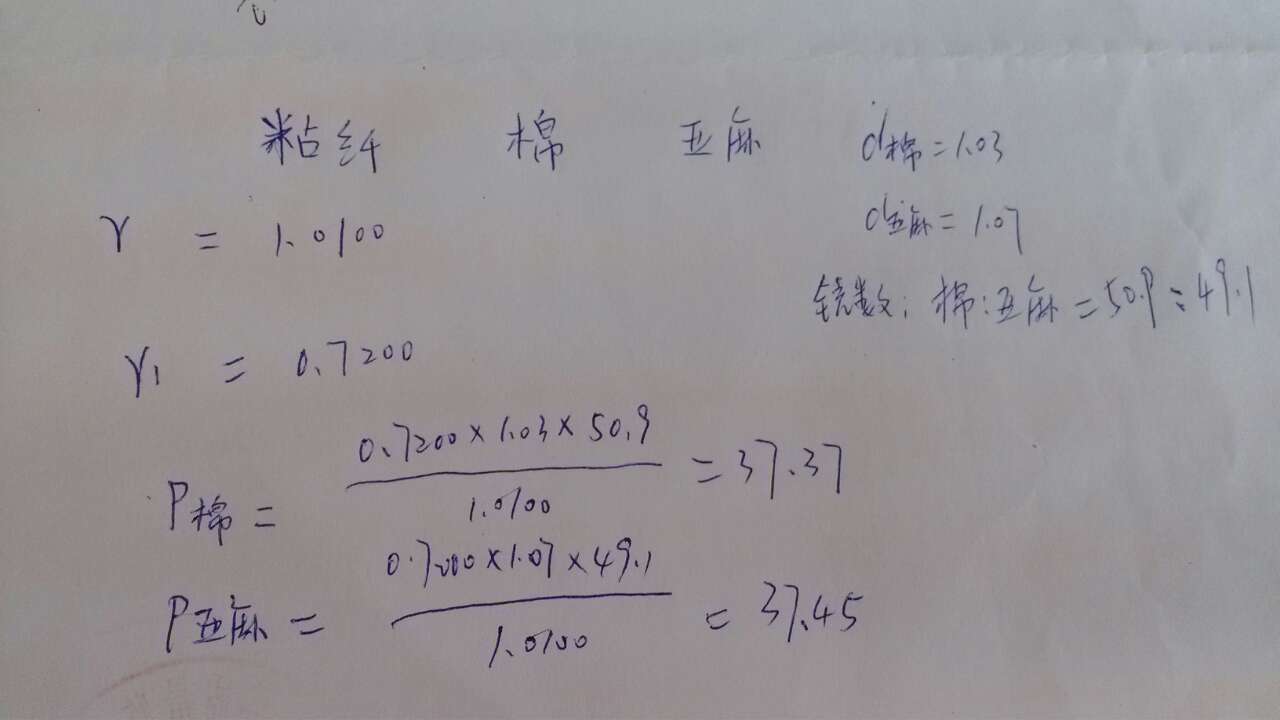 粘纤 棉 亚麻 d棉=1.03
γ = 1.0100
d亚麻=1.07
镜数: 棉:亚麻=50.9:49.1
γ1 = 0.7200
P棉= 0.7200×1.03×50.9 / 1.0100 =37.37
P亚麻= 0.7200×1.07×49.1 / 1.0100 = 37.45